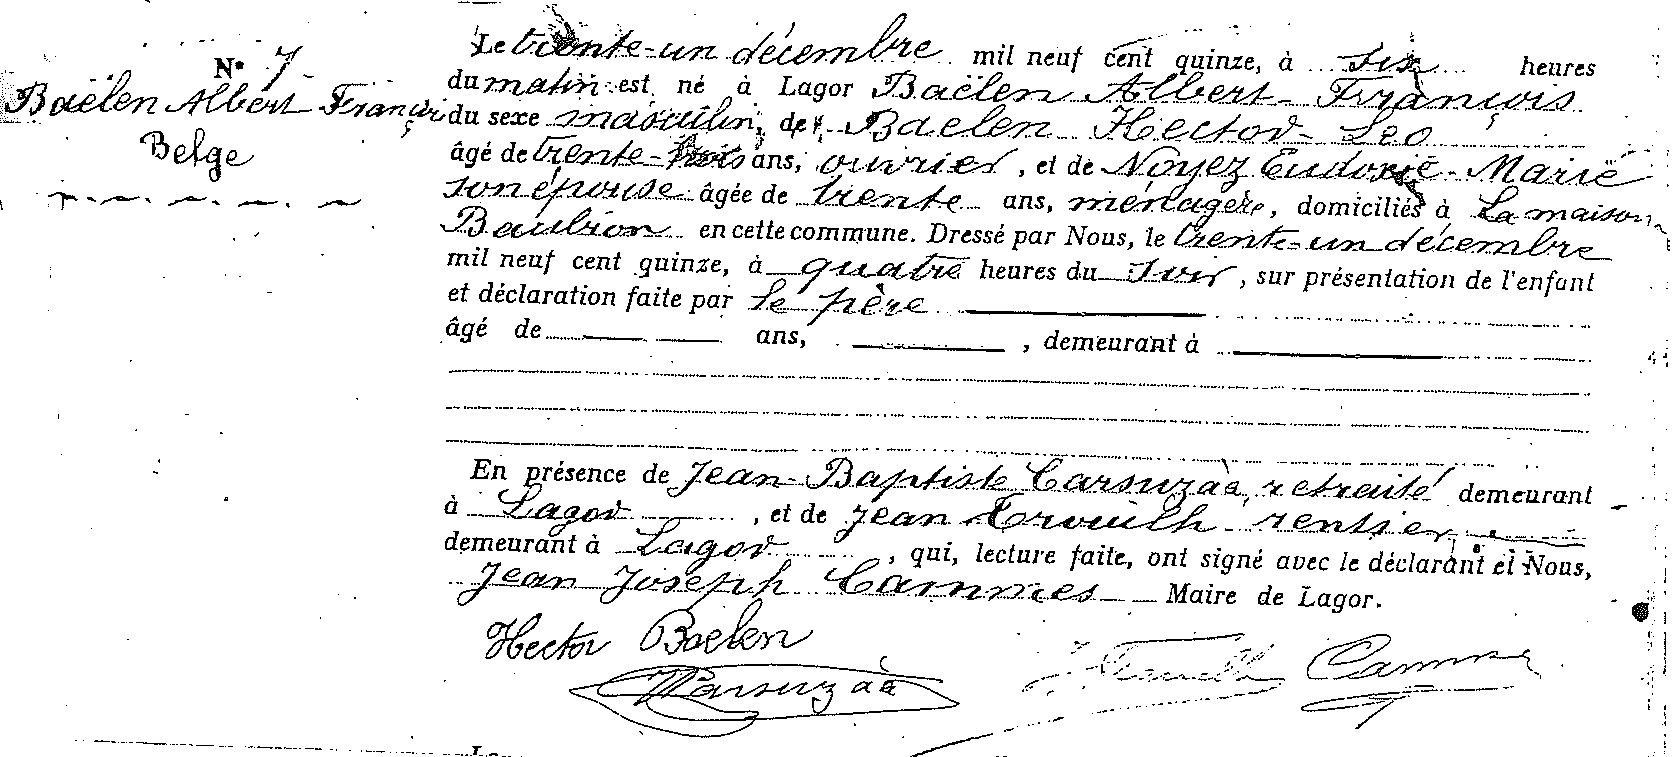 N° 7
Baëlen Albert François
Belge
Le trente-un décembre mil neuf cent quinze, à six heures
du matin est né à Lagor Baëlen Albert-François
du sexe masculin, de Baelen Hector-Leo
âgé de trente-trois ans, ouvrier, et de Noyez Eudoxie-Marie
son épouse âgée de trente ans, ménagère, domiciliés à La maison
en cette commune. Dressé par Nous, le trente-un décembre
mil neuf cent quinze, à quatre heures du soir, sur présentation de l'enfant
et déclaration faite par le père
âgé de ans, , demeurant à
En présence de Jean-Baptiste Carsuzàa, retraité demeurant
à Lagor, et de Jean Trouilh rentier
demeurant à Lagor, qui, lecture faite, ont signé avec le déclarant et Nous,
Jean Joseph Cammes Maire de Lagor.
Hector Baelen
Carsuzàa
Trouilh Camme